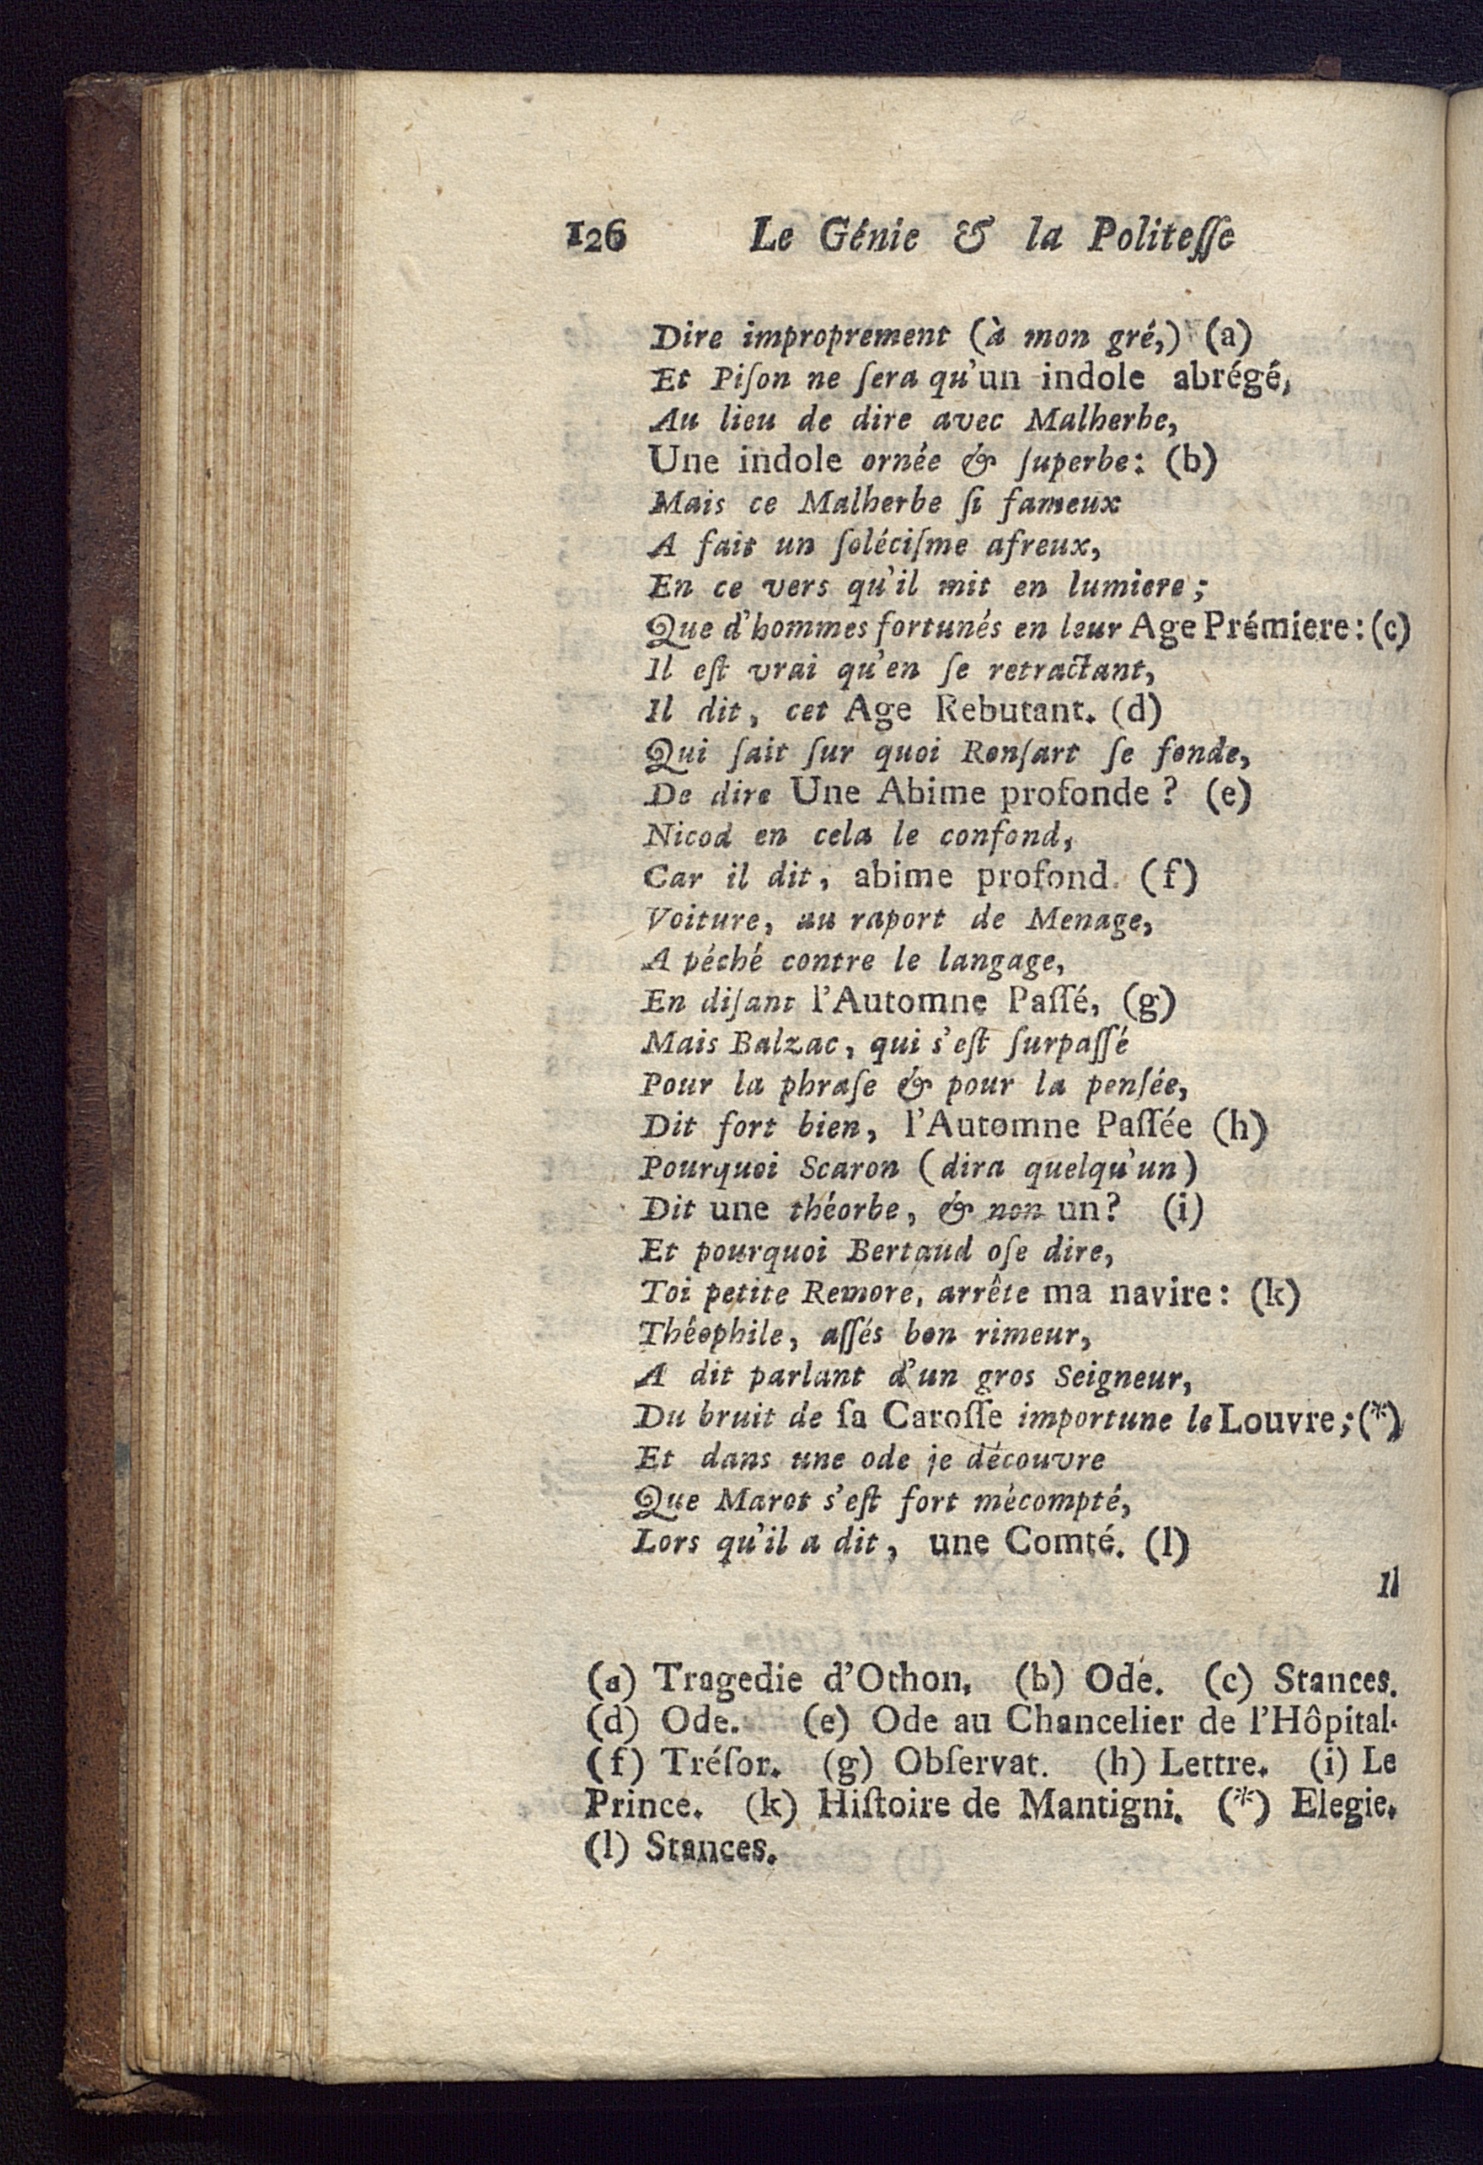 126 Le Génie & la Politeſſe
Dire improprement (à mon gré,) (a)
Et Piſon ne ſera qu'un indole abrégé,
Au lieu de dire avec Malherbe,
Une indole ornée & ſuperbe: (b)
Mais ce Malherbe ſi fameux
A fait un ſoléciſme afreux,
En ce vers qu'il mit en lumiere;
Que d'hommes fortunés en leur Age Prémiere: (c)
Il eſt vrai qu'en ſe retractant,
Il dit, cet Age Rebutant. (d)
Qui ſait ſur quoi Ronſart ſe fonde,
De dire Une Abime profonde? (e)
Nicod en cela le confond,
Car il dit, abime profond. (f)
Voiture, au raport de Menage,
A péché contre le langage,
En diſant l'Automne Paſſé, (g)
Mais Balzac, qui s'eſt ſurpaſſé
Pour la phraſe & pour la penſée,
Dit fort bien, l'Automne Paſſée (h)
Pourquoi Scaron (dira quelqu'un)
Dit une théorbe, & non un? (i)
Et pourquoi Bertaud oſe dire,
Toi petite Remore, arrête ma navire: (k)
Théophile, aſſés bon rimeur,
A dit parlant d'un gros Seigneur,
Du bruit de ſa Caroſſe importune le Louvre; (*)
Et dans une ode je découvre
Que Marot s'eſt fort mécompté,
Lors qu'il a dit, une Comté. (l)
Il
(a) Tragedie d'Othon. (b) Ode. (c) Stances.
(d) Ode. (e) Ode au Chancelier de l'Hôpital.
(f) Tréſor. (g) Obſervat. (h) Lettre. (i) Le
Prince. (k) Hiſtoire de Mantigni. (*) Elegie.
(l) Stances.